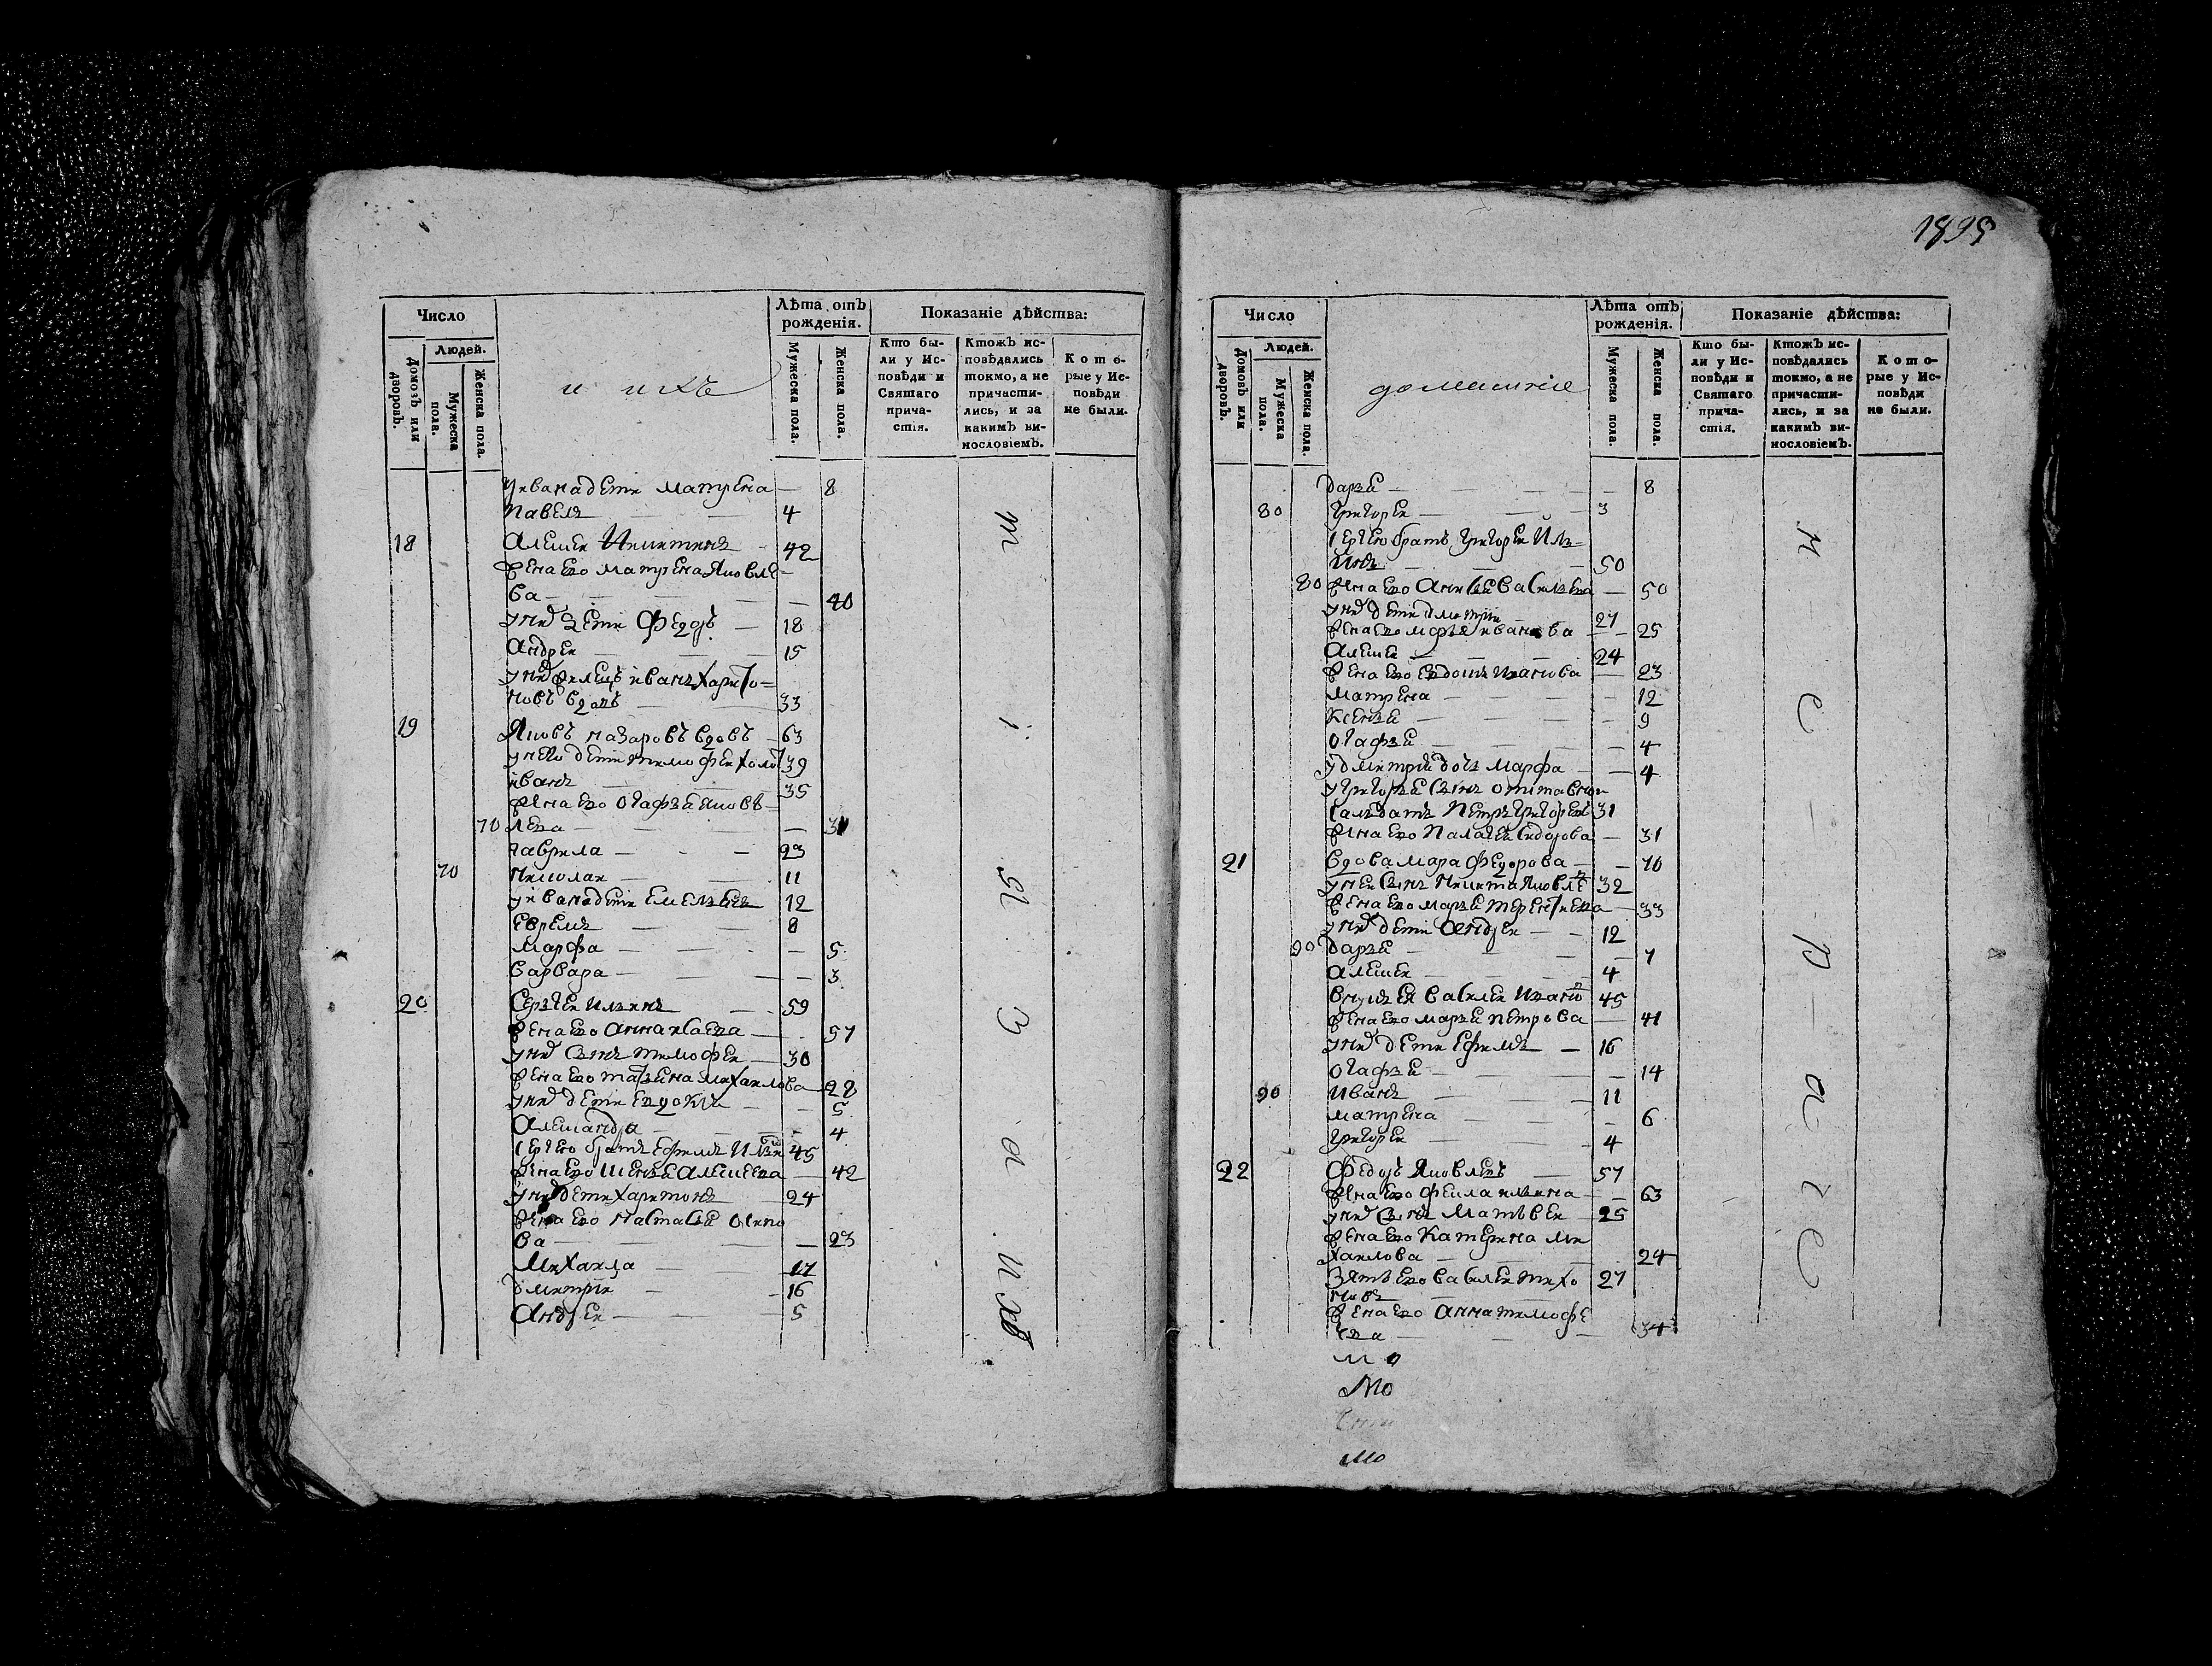 1895
Число
Людей.
Домовъ или дворовъ.
Мужеска пола.
Женска пола.
и ихъ
Лѣта отъ рожденія.
Мужеска пола.
Женска пола.
Показаніе дѣйства:
Кто бы-
ли у Ис-
повѣди и
Святаго
прича-
стія.
Ктожъ ис-
повѣдались
токмо, а не
причасти-
лись, и за
какимъ ви-
нословіемъ.
Кото-
рые у Ис-
повѣди
не были.
Уивана дети матрена — 8
павелъ — 4
18 Алексеи Никитинъ — 42
жена ево матрена Яковле-
ва — 40
уних дети Федоръ — 18
Андреи — 15
уних иванъ харито=
новъ вдовъ — 33
19 Яковъ назаровъ вдовъ — 63
унего дети тимофеи холост 39
иванъ — 35
жена ево огафья яковъ-
70 лева — 31
гаврила — 23
70 николаи — 11
уивана дети емельянъ 12
ефремъ — 8
марфа — 5
варвара — 3
20 Сергеи ильинъ — 59
жена ево анна исаева — 57
уних сынъ тимофеи — 30
жена ево татьяна михаилова — 28
уних дети евдокия — 5
Александра — 4
сергею братъ ефимъ ильинъ 45
жена ево ксенья алексеева — 42
уних дети харитонъ — 24
жена ево настасья осипо
ва — 23
михаила — 17
дмитрии — 16
Андреи — 5
т
і
я
з
а
ихъ
Число
Людей.
Домовъ или дворовъ.
Мужеска пола.
Женска пола.
домашніе
Лѣта отъ рожденія.
Мужеска пола.
Женска пола.
Показаніе дѣйства:
Кто бы-
ли у Ис-
повѣди и
Святаго
прича-
стія.
Ктожъ ис-
повѣдались
токмо, а не
причасти-
лись, и за
какимъ ви-
нословіемъ.
Кото-
рые у Ис-
повѣди
не были.
дарья — 8
80 григореи — 3
сергею братъ григореи иль=
инъ — 50
80 жена ево анисья васильева — 50
уних дети дмитрии — 27
жена ево ивановa — 25
алексеи — 24
жена ево евдокия иванова — 23
матрена — 12
ксенья — 9
огафья — 4
удмитрия дочь марфа — 4
угригорья сынъ отставнои
салъдатъ петръ григорьевъ 31
жена ево палагея сидорова — 31
21 вдова федорова — 70
унеи сынъ никита яковле 32
жена ево марья терентиева — 33
уних дети андреи — 12
90 дарья — 7
алексеи — 4
василеи ивано 45
жена ево марья петрова — 41
уних дети ефимъ — 16
огафья — 14
90 иванъ — 11
матрена — 6
григореи — 4
22 Федоръ яковлевъ — 57
жена ево ильина — 63
уних сынъ матъвеи — 25
жена ево катерина ми
хаилова — 24
зять ево василеи тихо 27
новъ
жена ево анна тимофе
ева — 34
н
е
р
а
г
о
мо
мо
мо